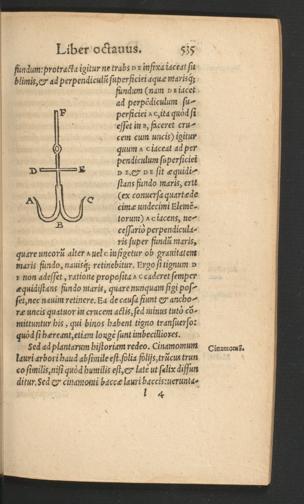 Liber octauus. 535
fundum: protracta igitur ne trabs D E infixa iaceat su
blimis, & ad perpendiculū superficiei aquæ marisq́;
fundum (nam D B iacet
ad perpēdiculum su-
perficiei A C, ita quòd si
esset in B, faceret cru-
cem cum uncis) igitur
F
quum A C iaceat ad per
pendiculum superficiei
D E, & D E sit æquidi-
D E
stans fundo maris, erit
(ex conuersa quartæ de
cimæ undecimi Elemē-
A C
torum) A C iacens, ne-
cessariò perpendicula-
B
ris super fundū maris,
quare uncorū alter A uel C infigetur ob grauitatem
maris fundo, nauisq́; retinebitur. Ergo si lignum D
E non adesset, ratione proposita A C caderet semper
æquidistans fundo maris, quare nunquam figi pos-
set, nec nauim retinere. Ea de causa fiunt & ancho-
ræ uncis quatuor in crucem actis, sed minus tutò cō-
mittuntur his, qui binos habent tigno transuerso:
quòd si hæreant, etiam longè sunt imbecilliores.
Sed ad plantarum historiam redeo. Cinamomum
Cinamomū.
lauri arbori haud absimile est. folia folijs, trūcus trun
co similis, nisi quòd humilis est, & latè ut salix diffun
ditur. Sed & cinamomi baccæ lauri baccis: ueruntā-
l 4